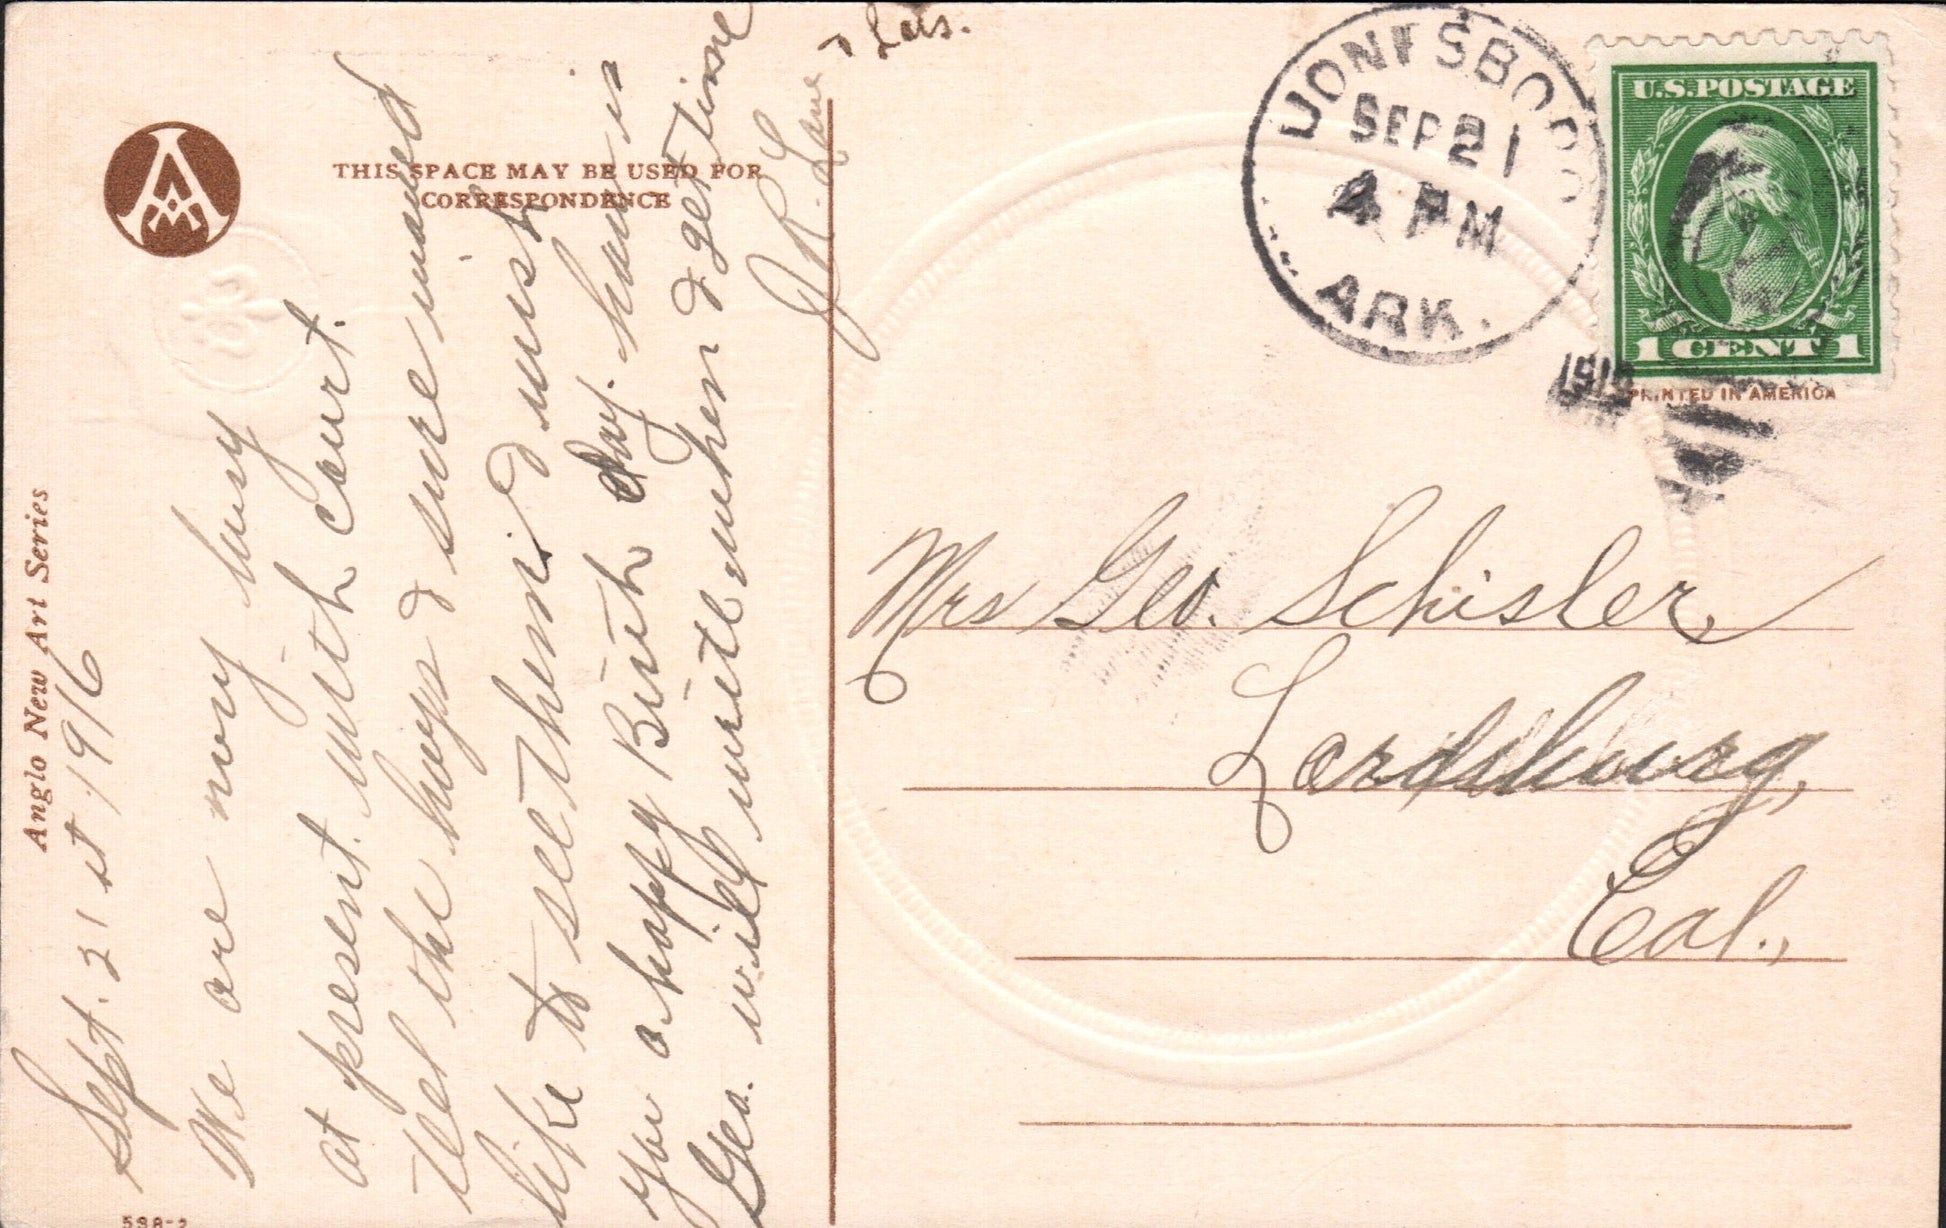 Anglo New Art Series
THIS SPACE MAY BE USED FOR
CORRESPONDENCE
Sept. 21st 1916
We are very busy
at present with Court.
Tel the boys I sure would
like to see them I must
you a happy Birth day. how is
Geo. will write when I get time
J R. Lane
598-2
JONESBORO
SEP 21
4 PM
ARK.
1916
U.S. POSTAGE
1 CENT 1
PRINTED IN AMERICA
Mrs Geo. Schisler,
Lordsburg,
Cal.,